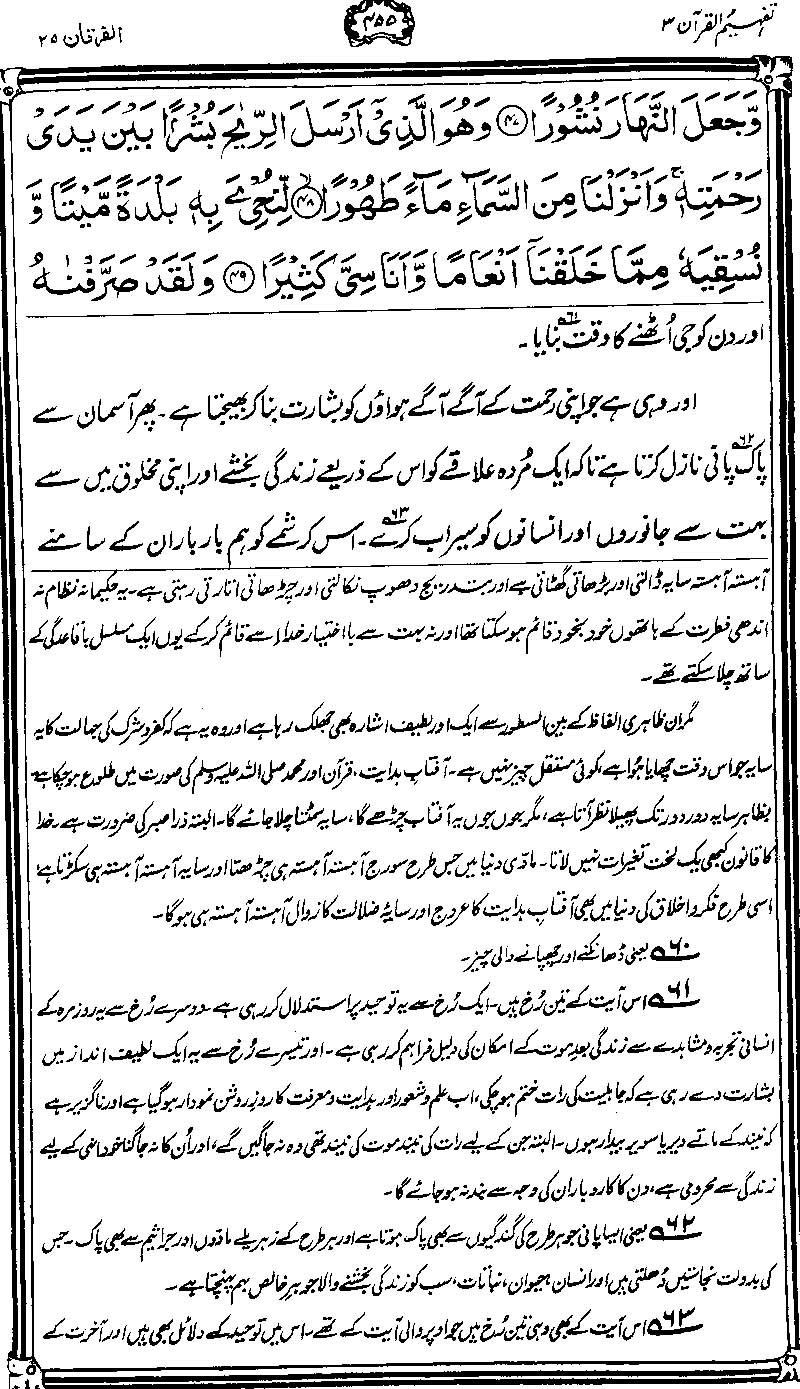 تفہیم القرآن ۳
۴۵۵
الفرقان ۲۵
وَّجَعَلَ النَّهَارَ نُشُوْرًا ﴿۴۷﴾ وَهُوَ الَّذِیْۤ اَرْسَلَ الرِّیٰحَ بُشْرًۢا بَیْنَ یَدَیْ
رَحْمَتِهٖ ۚ وَاَنْزَلْنَا مِنَ السَّمَآءِ مَآءً طَهُوْرًا ﴿۴۸﴾ لِّنُحْیِۦَ بِهٖ بَلْدَةً مَّیْتًا وَّ
نُسْقِیَهٗ مِمَّا خَلَقْنَاۤ اَنْعَامًا وَّاَنَاسِیَّ كَثِیْرًا ﴿۴۹﴾ وَلَقَدْ صَرَّفْنٰهُ
اور دن کو جی اُٹھنے کا وقت بنایا۔ ۶۱
اور وہی ہے جو اپنی رحمت کے آگے آگے ہواؤں کو بشارت بنا کر بھیجتا ہے۔ پھر آسمان سے
پاک ۶۲ پانی نازل کرتا ہے تاکہ ایک مُردہ علاقے کو اس کے ذریعے زندگی بخشے اور اپنی مخلوق میں سے
بہت سے جانوروں اور انسانوں کو سیراب کرے۔ ۶۳ اس کرشمے کو ہم بار بار ان کے سامنے
آہستہ آہستہ سایہ ڈالتی اور بڑھاتی گھٹاتی ہے اور بتدریج دھوپ نکالتی اور چڑھاتی اتارتی رہتی ہے۔ یہ حکیمانہ نظام نہ
اندھی فطرت کے ہاتھوں خود بخود قائم ہو سکتا تھا اور نہ بہت سے با اختیار خدا اسے قائم کر کے یوں ایک مسلسل باقاعدگی کے
ساتھ چلا سکتے تھے۔
مگر ان ظاہری الفاظ کے بین السطور سے ایک اور لطیف اشارہ بھی جھلک رہا ہے اور وہ یہ ہے کہ کفر و شرک کی جہالت کا یہ
سایہ جو اس وقت چھایا ہوا ہے، کوئی مستقل چیز نہیں ہے۔ آفتابِ ہدایت، قرآن اور محمد صلی اللہ علیہ وسلم کی صورت میں طلوع ہو چکا ہے
بظاہر سایہ دور دور تک پھیلا نظر آتا ہے، مگر جوں جوں یہ آفتاب چڑھے گا، سایہ سمٹتا چلا جائے گا۔ البتہ ذرا صبر کی ضرورت ہے۔ خدا
کا قانون کبھی یک لخت تغیرات نہیں لاتا۔ مادّی دنیا میں جس طرح سورج آہستہ آہستہ ہی چڑھتا اور سایہ آہستہ آہستہ ہی سکڑتا ہے،
اسی طرح فکر و اخلاق کی دنیا میں بھی آفتابِ ہدایت کا عروج اور سایۂ ضلالت کا زوال آہستہ آہستہ ہی ہوگا۔
۶۰ یعنی ڈھانکنے اور چھپانے والی چیز۔
۶۱ اس آیت کے تین رُخ ہیں۔ ایک رُخ سے یہ توحید پر استدلال کر رہی ہے۔ دوسرے رُخ سے یہ روزمرہ کے
انسانی تجربہ و مشاہدے سے زندگی بعدِ موت کے امکان کی دلیل فراہم کر رہی ہے۔ اور تیسرے رُخ سے یہ ایک لطیف انداز میں
بشارت دے رہی ہے کہ جاہلیت کی رات ختم ہو چکی، اب علم و شعور اور ہدایت و معرفت کا روزِ روشن نمودار ہو گیا ہے اور ناگزیر ہے
کہ نیند کے ماتے دیر یا سویر بیدار ہوں۔ البتہ جن کے لیے رات کی نیند موت کی نیند تھی وہ نہ جاگیں گے، اور اُن کا نہ جاگنا خود انہی کے لیے
زندگی سے محرومی ہے، دن کا کاروبار ان کی وجہ سے بند نہ ہو جائے گا۔
۶۲ یعنی ایسا پانی جو ہر طرح کی گندگیوں سے بھی پاک ہوتا ہے اور ہر طرح کے زہریلے مادّوں اور جراثیم سے بھی پاک۔ جس
کی بدولت نجاستیں دُھلتی ہیں اور انسان، حیوان، نباتات، سب کو زندگی بخشنے والا جوہرِ خالص بہم پہنچتا ہے۔
۶۳ اس آیت کے بھی وہی تین رُخ ہیں جو اوپر والی آیت کے تھے۔ اس میں توحید کے دلائل بھی ہیں اور آخرت کے